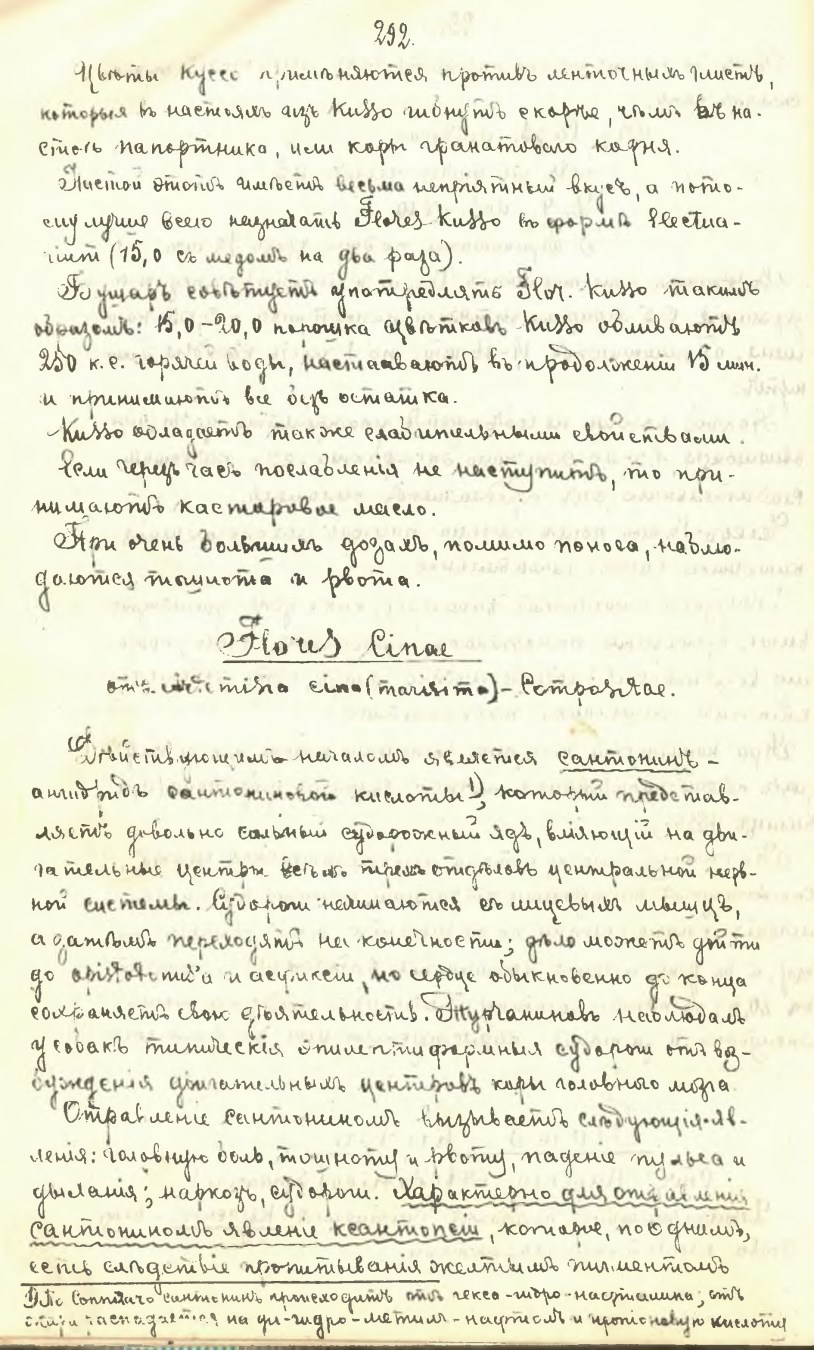 292.
Цвѣты Куссо примѣняются противъ ленточныхъ глистъ,
которыя въ настояхъ изъ Kusso гибнутъ скорѣе, чѣмъ въ на-
стоѣ папортника, или коры гранатоваго корня.
Настой этотъ имѣетъ весьма непріятный вкусъ, а пото-
му лучше всего назначать Flores Kusso въ формѣ Electua-
(15,0 съ медомъ на два раза).
совѣтуетъ употреблять Flor. Kusso такимъ
образомъ: 15,0-20,0 порошка цвѣтковъ Kusso обливаютъ
250 к.с. горячей воды, настаиваютъ въ продолженіи 15 мин.
и принимаютъ все безъ остатка.
Kusso обладаетъ также слабительными свойствами.
Если черезъ часъ послабленія не наступитъ, то при-
нимаютъ касторовое масло.
При очень большихъ дозахъ, помимо поноса, наблю-
даются тошнота и рвота.
Flores Cinae
отъ cina (maritima) - Compositae.
Дѣйствующимъ началомъ является сантонинъ -
ангидридъ сантониновой кислоты 1), который представ-
ляетъ довольно сильный судорожный ядъ, вліяющій на дви-
гательные центры всѣхъ трехъ отдѣловъ центральной нерв-
ной системы. Судороги начинаются съ лицевыхъ мышцъ,
а затѣмъ переходятъ на конечности; дѣло можетъ дойти
до opistotonus'а и асфиксіи, но сердце обыкновенно до конца
сохраняетъ свою дѣятельность. Турчаниновъ наблюдалъ
у собакъ типическія эпилептиформныя судороги отъ воз-
бужденія двигательныхъ центровъ коры головного мозга
Отравленіе сантониномъ вызываетъ слѣдующія яв-
ленія: головную боль, тошноту и рвоту, паденіе пульса и
дыханія; наркозъ, судороги. Характерно для отравленія
сантониномъ явленіе ксантопсіи, которое, по однимъ,
есть слѣдствіе пропитыванія желтымъ пигментомъ
1) По сантонинъ происходитъ отъ гексо-гидро-нафталина; отъ
распадается на ди-гидро-метил-нафтол и пропіоновую кислоту